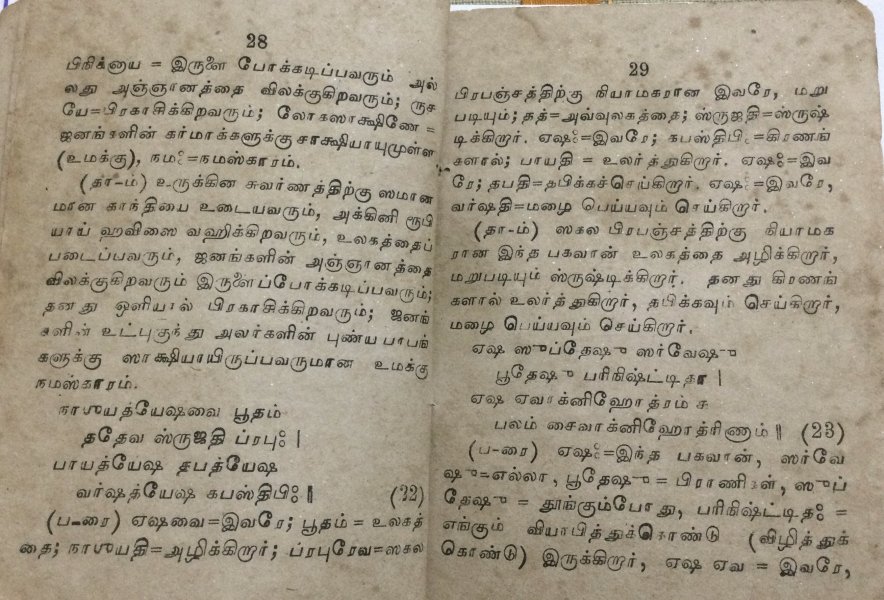 28
பிநிக்நாய = இருளை போக்கடிப்பவரும் அல்
லது அஞ்ஞானத்தை விலக்குகிறவரும்; ருச
யே=பிரகாசிக்கிறவரும்; லோகஸாக்ஷிணே =
ஜனங்களின் கர்மாக்களுக்கு சாக்ஷியாயுமுள்ள
(உமக்கு), நம꞉=நமஸ்காரம்.
(தா-ம்) உருக்கின சுவர்ணத்திற்கு ஸமான
மான காந்தியை உடையவரும், அக்கினி ரூபி
யாய் ஹவிஸை வஹிக்கிறவரும், உலகத்தைப்
படைப்பவரும், ஜனங்களின் அஞ்ஞானத்தை
விலக்குகிறவரும் இருளைப்போக்கடிப்பவரும்;
தனது ஒளியால் பிரகாசிக்கிறவரும்; ஜனங்
களின் உட்புகுந்து அவர்களின் புண்ய பாபங்
களுக்கு ஸாக்ஷியாயிருப்பவருமான உமக்கு
நமஸ்காரம்.
நாஶயத்யேஷவை பூதம்
ததேவ ஸ்ருஜதி ப்ரபு꞉ |
பாயத்யேஷ தபத்யேஷ
வர்ஷத்யேஷ கபஸ்திபி꞉ ‖ (22)
(ப-ரை) ஏஷவை=இவரே; பூதம் = உலகத்
தை; நாஶயதி=அழிக்கிறார்; ப்ரபுரேவ=ஸகல
29
பிரபஞ்சத்திற்கு நியாமகரான இவரே, மறு
படியும்; தத்=அவ்வுலகத்தை; ஸ்ருஜதி=ஸ்ருஷ்
டிக்கிறார். ஏஷ꞉=இவரே; கபஸ்திபி꞉=கிரணங்
களால்; பாயதி = உலர்த்துகிறார். ஏஷ꞉=இவ
ரே; தபதி=தபிக்கச்செய்கிறார். ஏஷ꞉=இவரே,
வர்ஷதி=மழை பெய்யவும் செய்கிறார்.
(தா-ம்) ஸகல பிரபஞ்சத்திற்கு நியாமக
ரான இந்த பகவான் உலகத்தை அழிக்கிறார்,
மறுபடியும் ஸ்ருஷ்டிக்கிறார். தனது கிரணங்
களால் உலர்த்துகிறார், தபிக்கவும் செய்கிறார்,
மழை பெய்யவும் செய்கிறார்.
ஏஷ ஸுப்தேஷு ஸர்வேஷு
பூதேஷு பரிநிஷ்ட்டிதா |
ஏஷ ஏவாக்னிஹோத்ரம் ச
பலம் சைவாக்னிஹோத்ரிணாம் ‖ (23)
(ப-ரை) ஏஷ꞉=இந்த பகவான், ஸர்வே
ஷு=எல்லா, பூதேஷு = பிராணிகள், ஸுப்
தேஷு = தூங்கும்போது, பரிநிஷ்ட்டித꞉ =
எங்கும் வியாபித்துக்கொண்டு (விழித்துக்
கொண்டு) இருக்கிறார், ஏஷ ஏவ = இவரே,